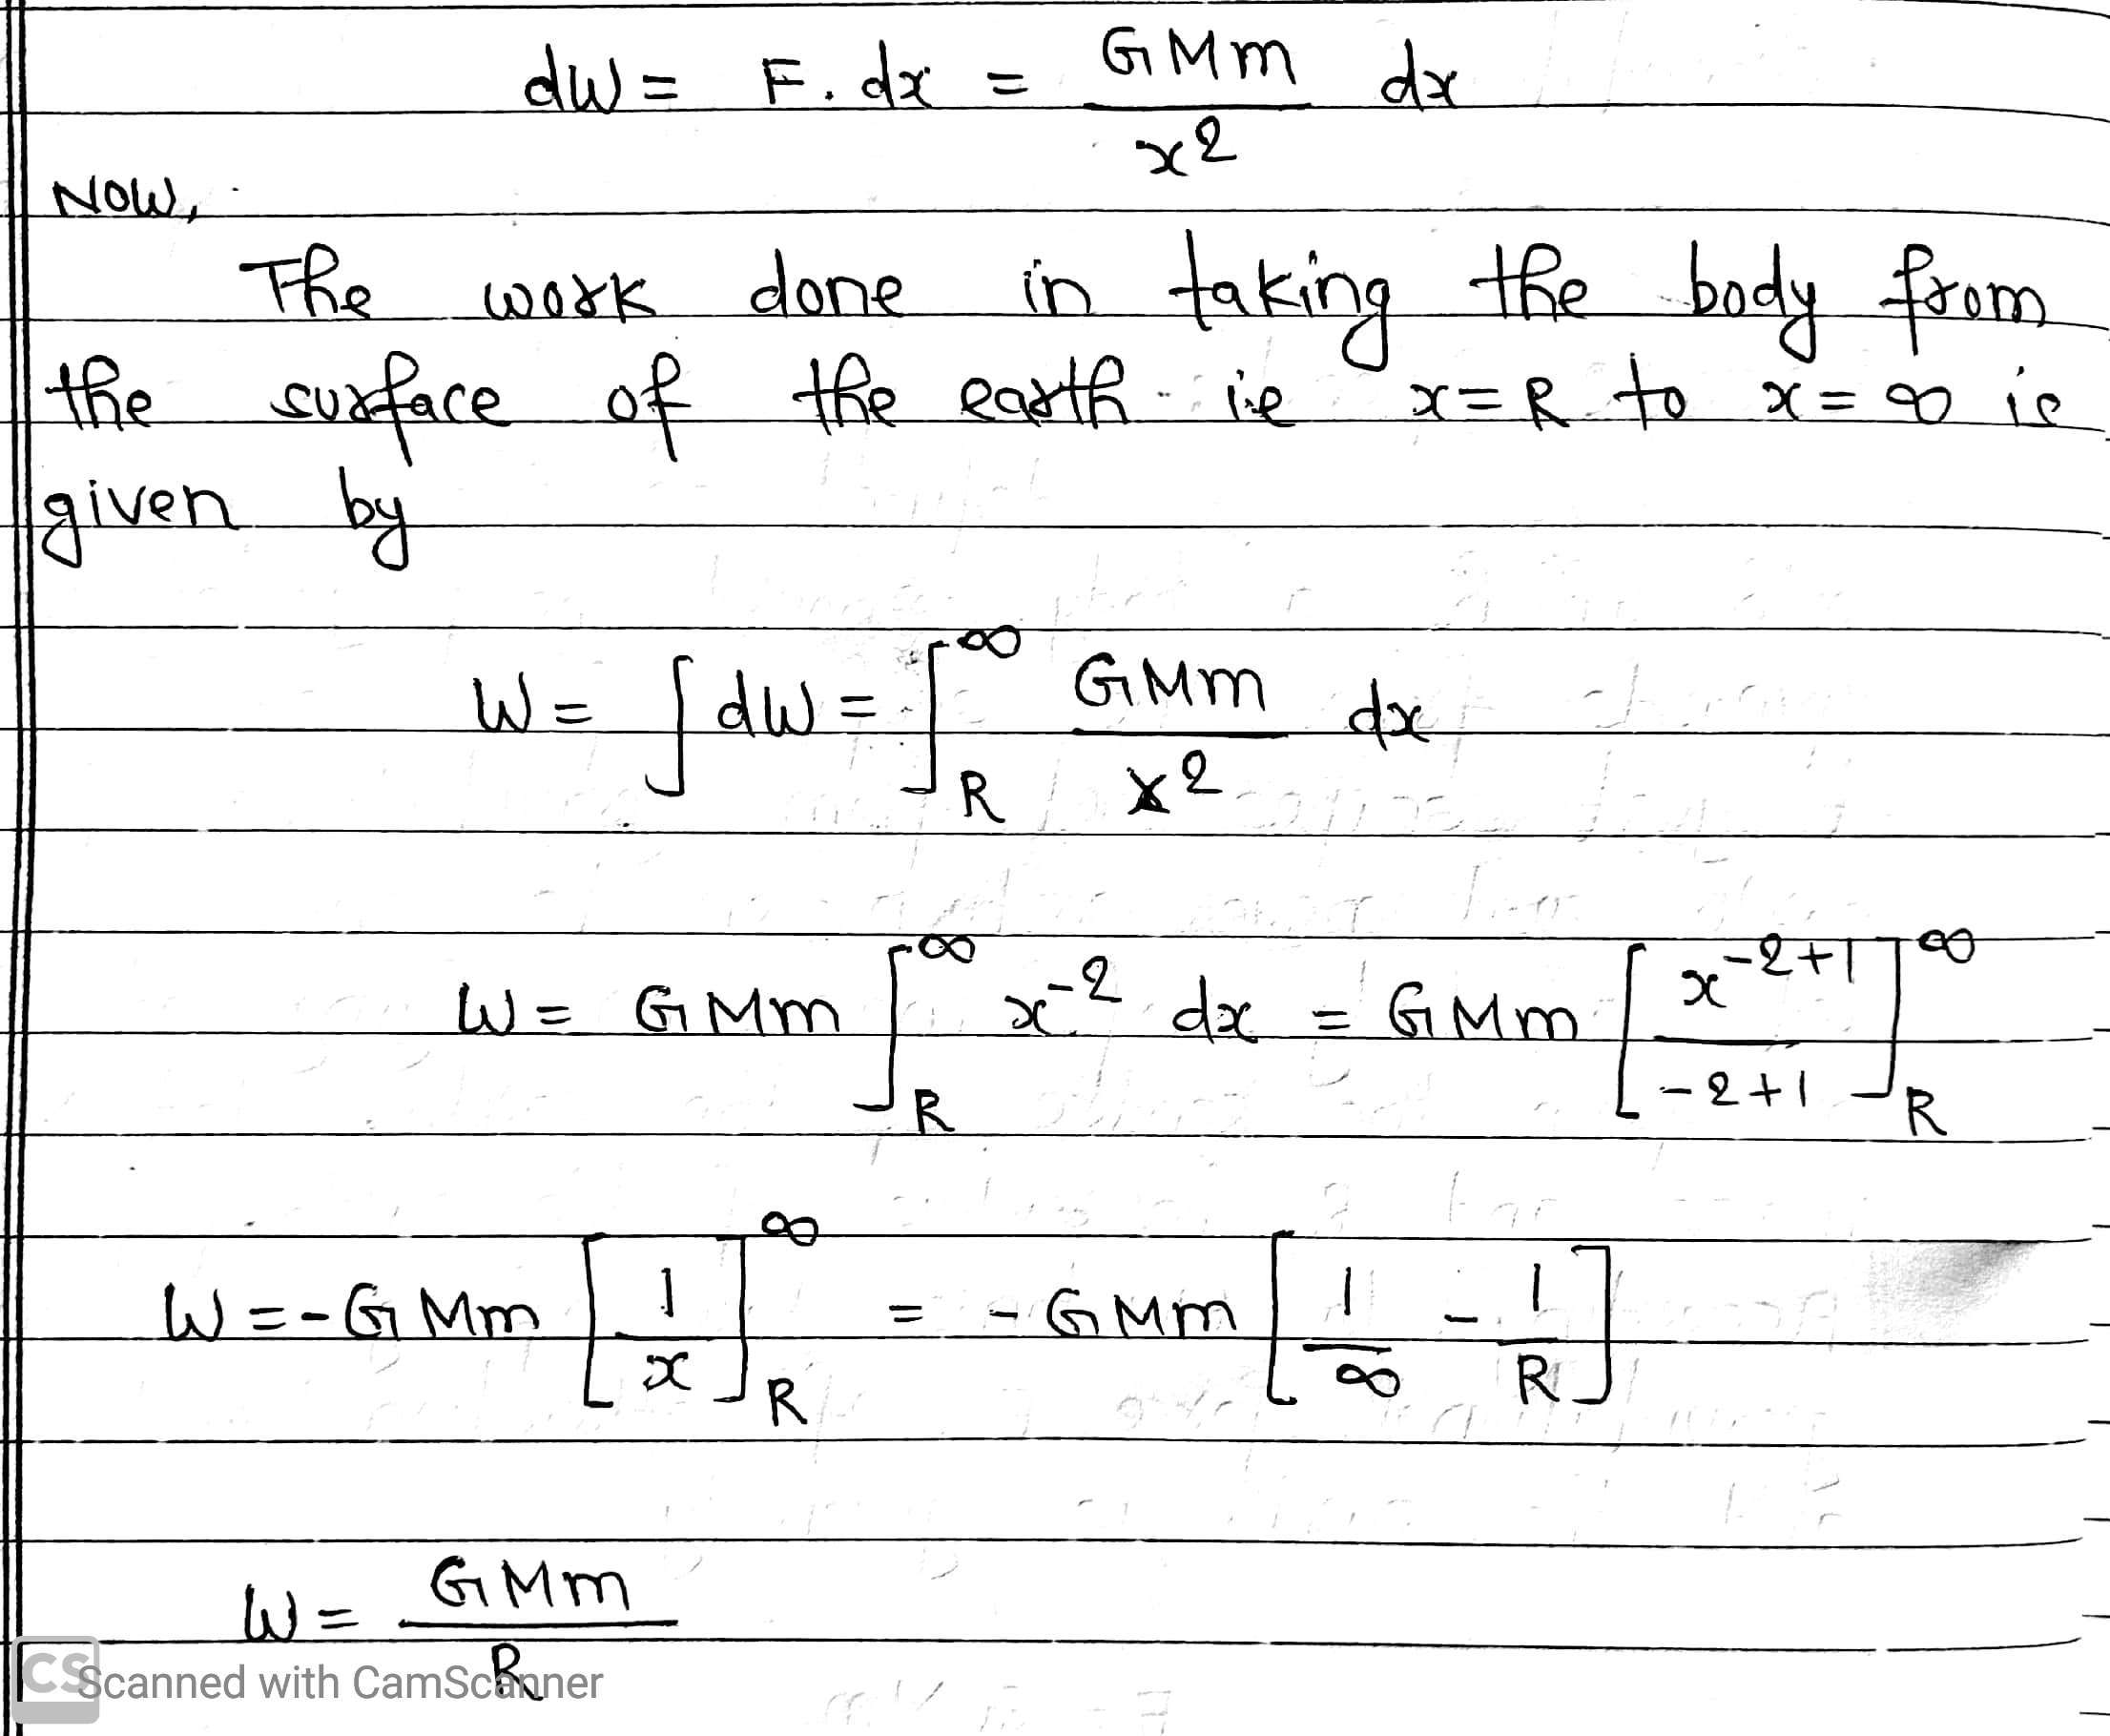 dW = F. dx = GMm/x² dx
NOW,
The work done in taking the body from
the surface of the earth ie x=R to x=∞ is
given by
W = ∫dW = ∫_R^∞ GMm/x² dx
W = GMm ∫_R^∞ x⁻² dx = GMm [x^(-2+1)/(-2+1)]_R^∞
W = -GMm [1/x]_R^∞ = -GMm [1/∞ - 1/R]
W = GMm/R
CS Scanned with CamScanner